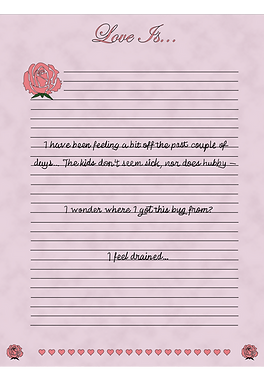 Love Is...
I have been feeling a bit off the past couple of
days... The kids don't seem sick, nor does hubby –
I wonder where I got this bug from?
I feel drained...